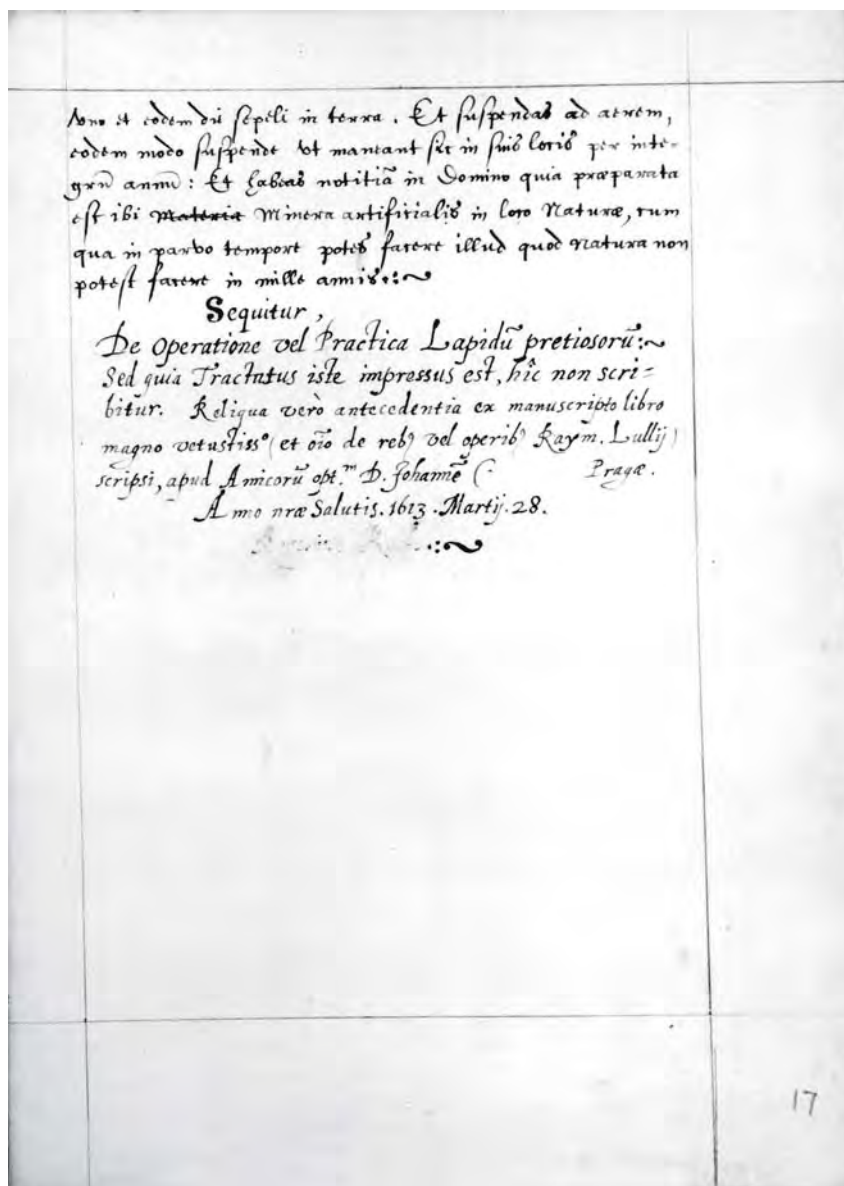 uno et eodem die sepeli in terra. Et suspendas ad aerem,
eodem modo suspende vt maneant sic in suis locis per inte-
grū annū: Et habeas notitiā in Domino quia præparata
est ibi Materia Minera artificialis in loco Naturæ, cum
qua in parvo tempore potes facere illud quod Natura non
potest facere in mille annis.:~
Sequitur,
De Operatione vel Practica Lapidū pretiosorū:~
Sed quia Tractatus iste impressus est, hîc non scri=
bitur. Reliqua verò antecedentia ex manuscripto libro
magno vetustiss° (et oīo de reb9 vel operib9 Raym. Lullij)
scripsi, apud Amicorū opt.m D. Johannē (. Pragæ.
Anno nræ Salutis. 1613. Martij. 28.
.:~
17